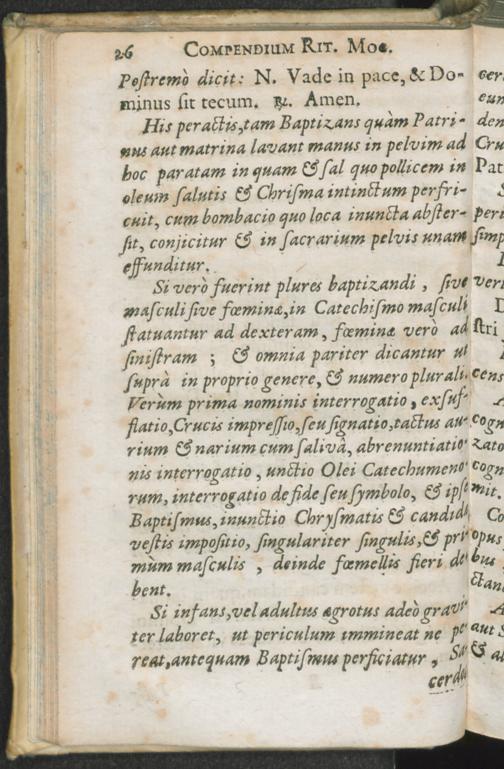 26 COMPENDIUM RIT. MOG.
Poſtremò dicit: N. Vade in pace, & Do-
minus ſit tecum. ℟. Amen.
His peractis, tam Baptizans quàm Patri-
nus aut matrina lavant manus in pelvim ad
hoc paratam in quam & ſal quo pollicem in
oleum ſalutis & Chriſma intinctum perfri-
cuit, cum bombacio quo loca inuncta abſter-
ſit, conjicitur & in ſacrarium pelvis unam
effunditur.
Si verò fuerint plures baptizandi, ſive
maſculi ſive fœminæ, in Catechiſmo maſculi
ſtatuantur ad dexteram, fœminæ verò ad
ſiniſtram ; & omnia pariter dicantur ut
ſuprà in proprio genere, & numero plurali.
Verùm prima nominis interrogatio, exſuf-
flatio, Crucis impreſſio, ſeu ſignatio, tactus au-
rium & narium cum ſalivâ, abrenuntiatio-
nis interrogatio, unctio Olei Catechumeno-
rum, interrogatio de fide ſeu ſymbolo, & ipſe
Baptiſmus, inunctio Chryſmatis & candidæ
veſtis impoſitio, ſingulariter ſingulis, & pri-
mùm maſculis, deinde fœmellis fieri de-
bent.
Si infans, vel adultus ægrotus adeò gravi-
ter laboret, ut periculum immineat ne pe-
reat, antequam Baptiſmus perficiatur, Sa-
cerdo